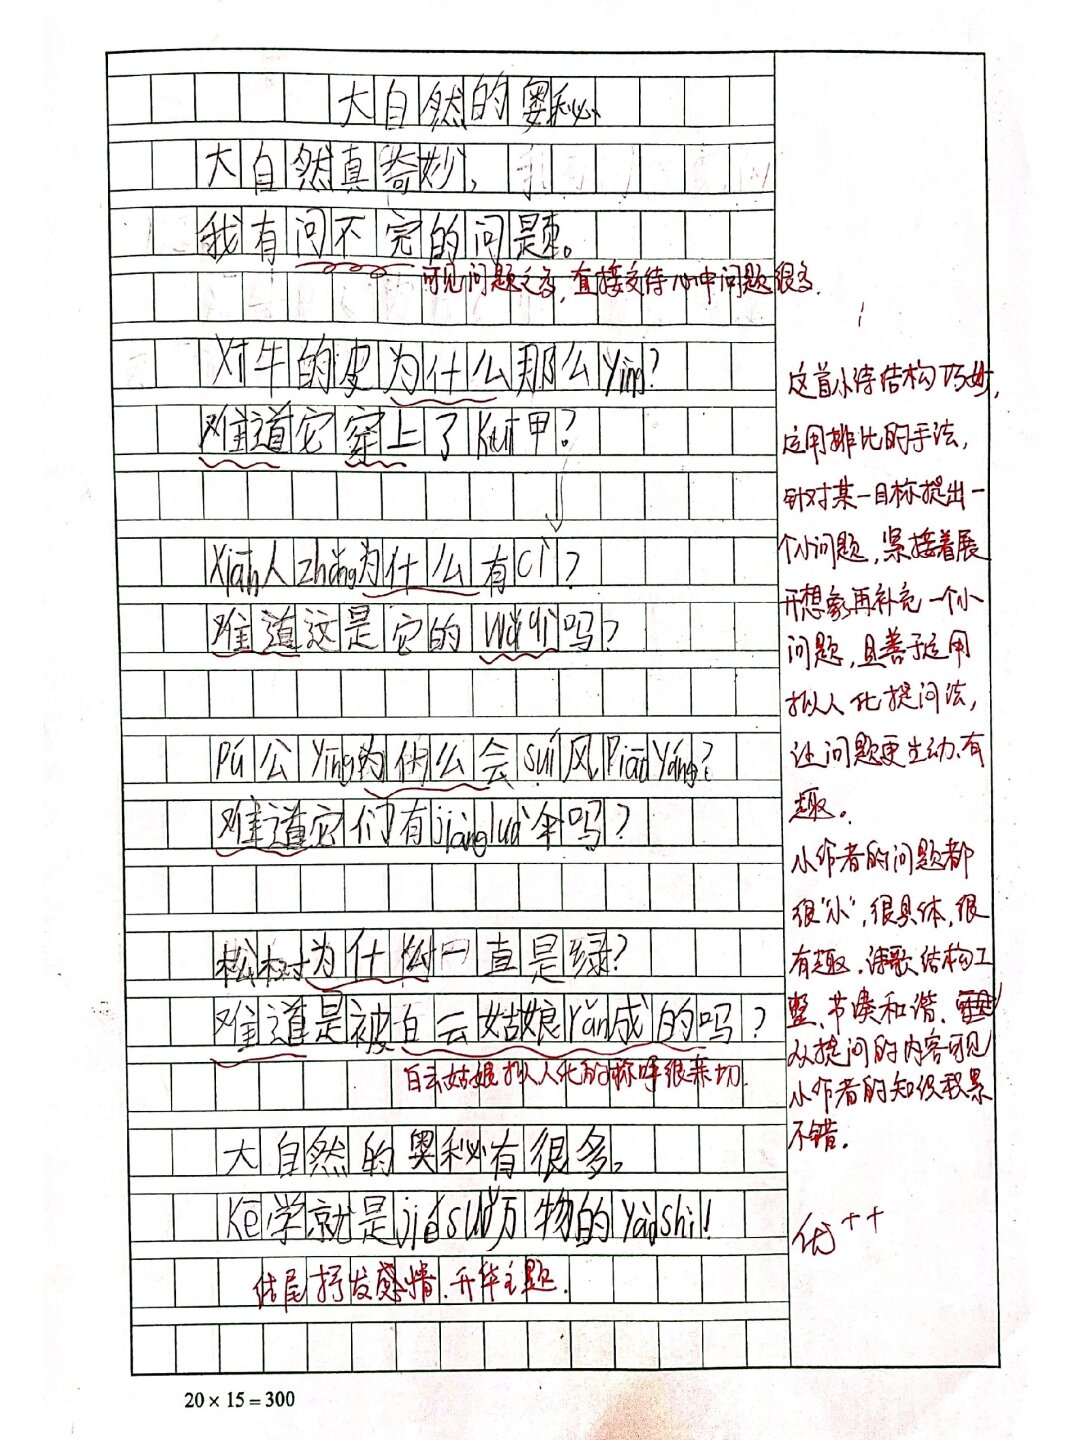 大自然的奥秘
大自然真奇妙，
我有问不完的问题。
可见问题之多，直接交待心中问题很多.
对牛的皮为什么那么ying？
难道它穿上了kui甲？
xiān人zhǎng为什么有cì？
难道这是它的wǔqì吗？
Pú公yīng为什么会suí风Piāoyáng？
难道它们有jiàngluò伞吗？
松树为什么一直是绿？
难道是被白云姑娘rǎn成的吗？
白云姑娘拟人化的称呼很亲切.
大自然的奥秘有很多，
kē学就是jiěsuǒ万物的yàoshi！
结尾抒发感情.升华主题.
这首小诗结构巧妙，
运用排比的手法，
针对某一目标提出一
个小问题，紧接着展
开想象再补充一个小
问题，且善于运用
拟人化提问法，
让问题更生动、有
趣。
小作者的问题都
很“小”，很具体，很
有趣．诗歌结构工
整、节凑和谐、
从提问的内容可见
小作者的知识积累
不错.
优++
20×15=300